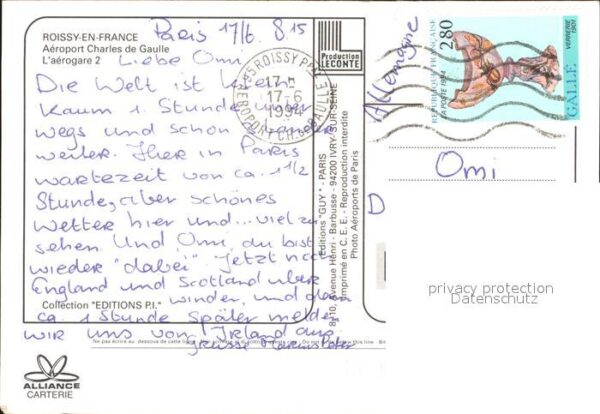 ROISSY-EN-FRANCE
Aéroport Charles de Gaulle
L'aérogare 2
Paris 17/6. 8.15
Liebe Omi
Die Welt ist klein
kaum 1 Stunde unter
wegs und schon
weiter. Hier in Paris
wartezeit von ca. 1 1/2
Stunde, aber schönes
Wetter hier und... viel zu
sehen Und Omi, du bist
wieder "dabei". Jetzt noch
England und Scotland über
winden, und dann
ca 1 Stunde Später melden
wir uns von Irland aus
Grüsse
Collection "EDITIONS P.I."
ALLIANCE
CARTERIE
Ne pas écrire au dessous de cette ligne
Production
LECONTE
Editions "GUY" - PARIS
8-10, Avenue Henri - Barbusse - 94200 IVRY-SUR-SEINE
Imprimé en C.E.E. - Reproduction interdite
Photo Aéroports de Paris
ROISSY PPAL
17-H
17-6
1994
AEROPORT CH. DE GAULLE
Allemagne
REPUBLIQUE FRANÇAISE
2,80
LA POSTE 1994
GALLÉ
VERRERIE
1901
Omi
D
privacy protection
Datenschutz